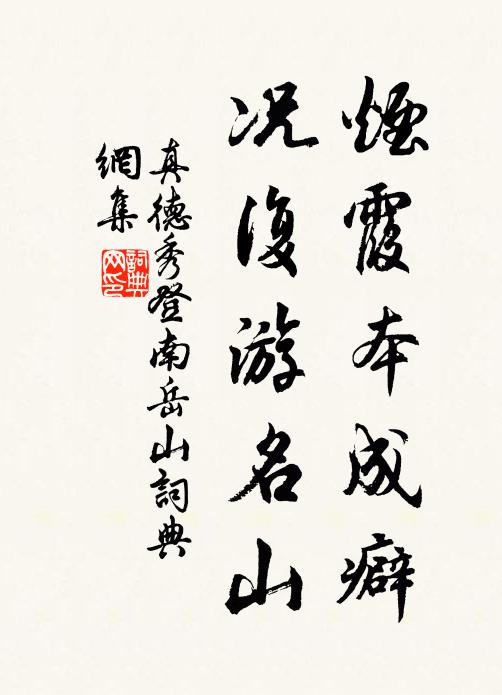 煙霞本成癖
况復游名山
真德秀登南岳山詞典
網集
詞典
网印